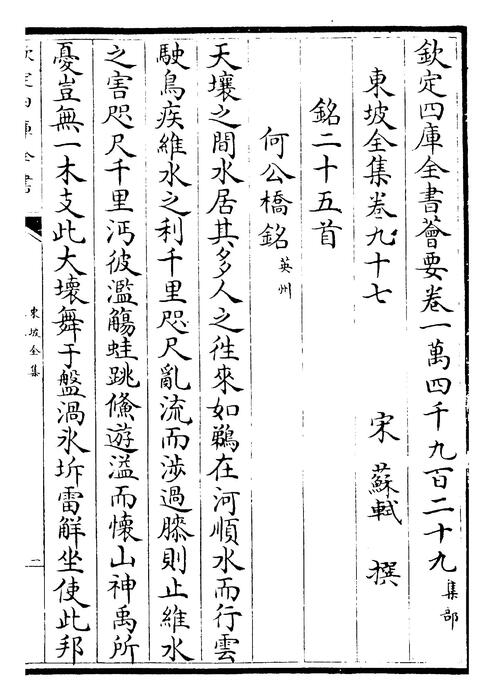 欽定四庫全書薈要卷一萬四千九百二十九集部
東坡全集卷九十七　宋　蘇軾　撰
銘二十五首
何公橋銘英州
天壤之間水居其多人之徃來如鵜在河順水而行雲
駛鳥疾維水之利千里咫尺亂流而涉過膝則止維水
之害咫尺千里沔彼濫觴蛙跳鯈遊溢而懷山神禹所
憂豈無一木支此大壞舞于盤渦氷坼雷解坐使此邦
欽定四庫全書
東坡全集